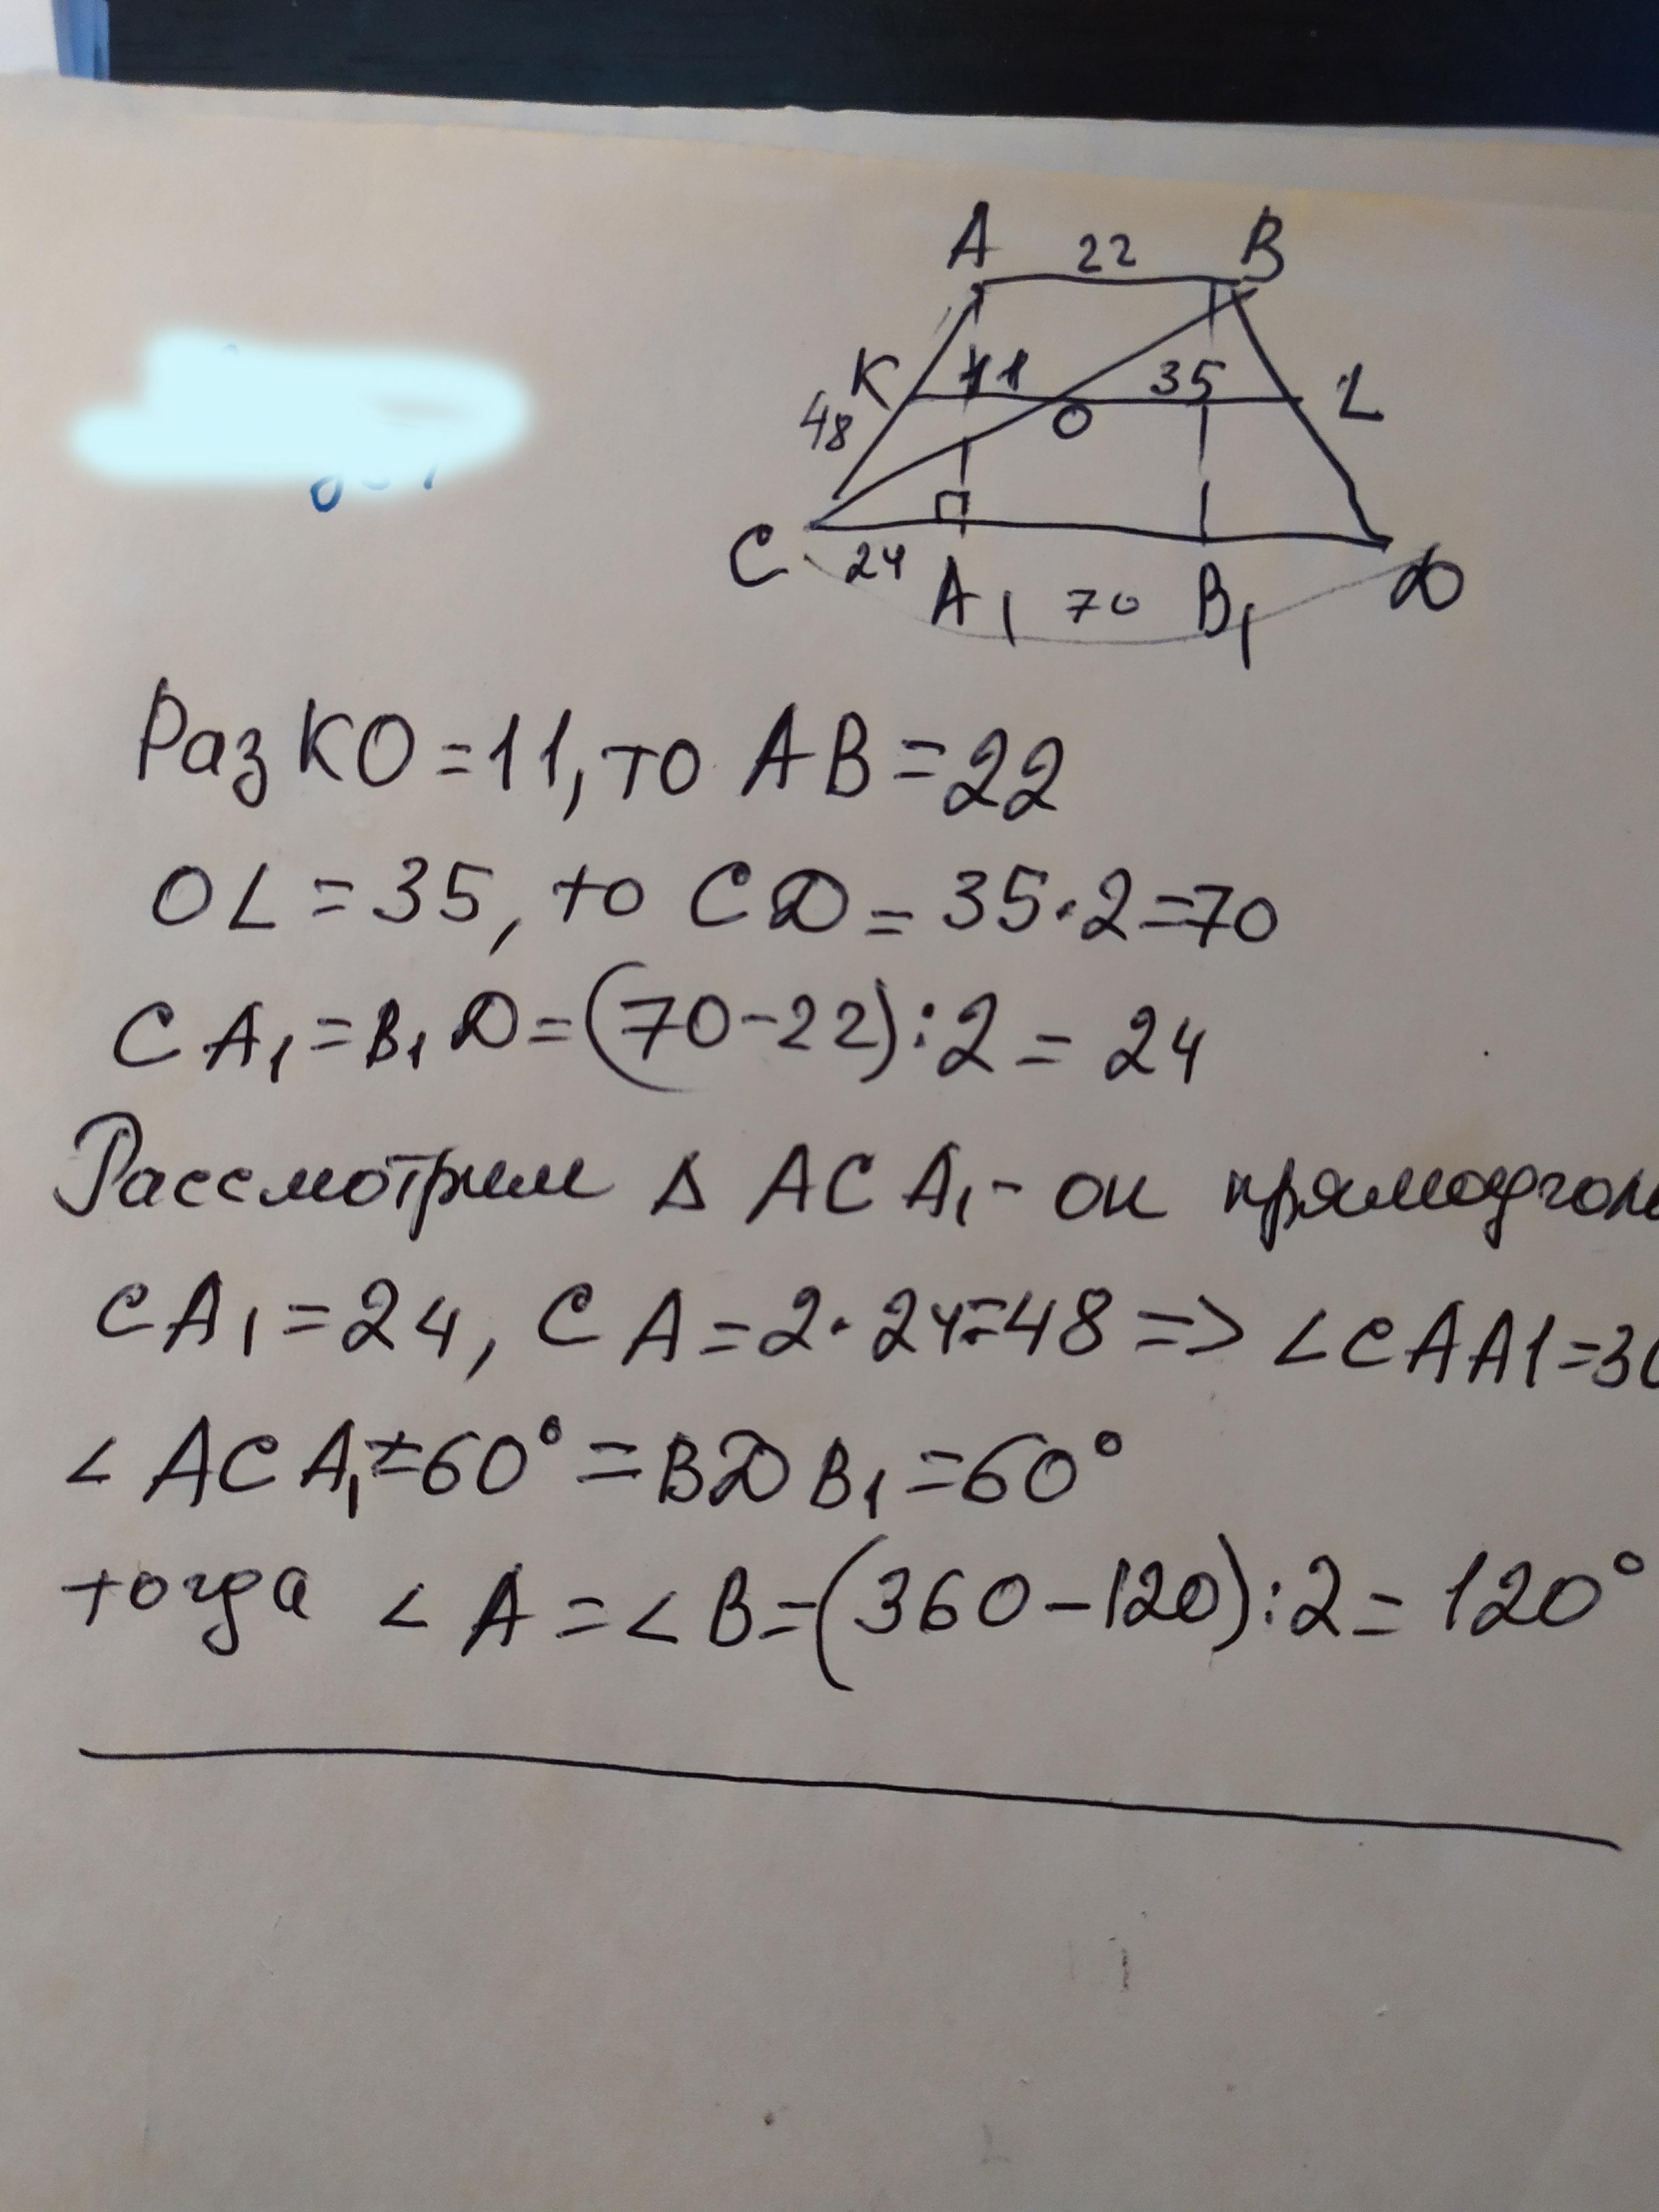 A 22 B
K 11 35 L
48 O
C 24 A₁ 70 B₁ D
Раз KO=11, то AB=22
OL=35, то CD=35·2=70
CA₁=B₁D=(70-22):2=24
Рассмотрим Δ ACA₁- он прямоуголь
CA₁=24, CA=2·24=48=> ∠CAA1=30
∠ACA₁=60°=BDB₁=60°
тогда ∠A=∠B=(360-120):2=120°